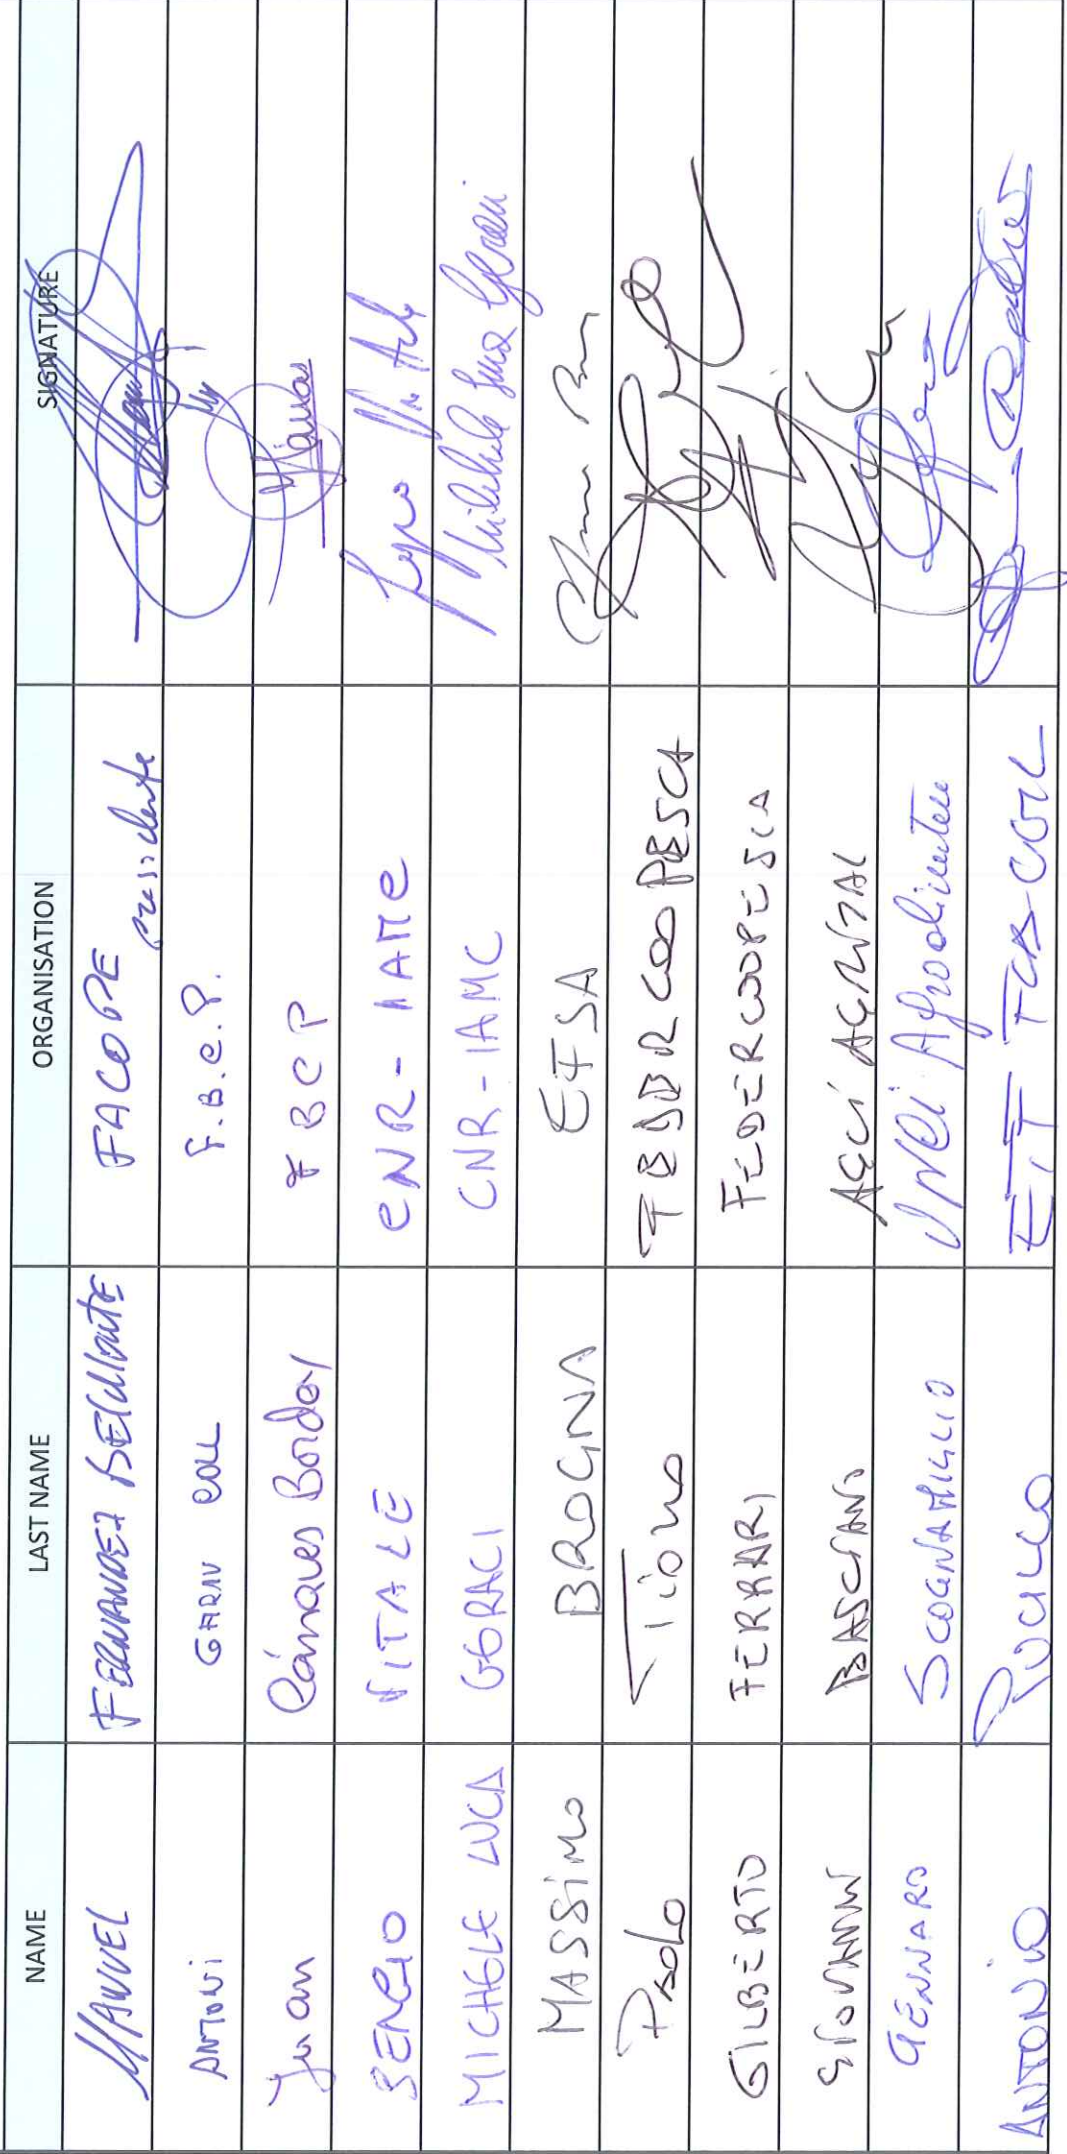 NAME LAST NAME ORGANISATION SIGNATURE
MANUEL FERNANDEZ BELMONTE FACOPE presidente
ANTONI GARAU COLL F.B.C.P.
Juan Cánaves Borday F B C P
SERGIO VITALE CNR-IAMC
MICHELE LUCA GERACI CNR-IAMC Michele Luca Geraci
MASSIMO BROGNA EFSA
PAOLO Tiomo FEDERCOOPESCA
GILBERTO FERRARI FEDERCOOPESCA
GIOVANNI BASCIANO AGCI AGRITAL
GENNARO SCOGNAMIGLIO UNCI Agroalimentare
ANTONIO PUCILLO